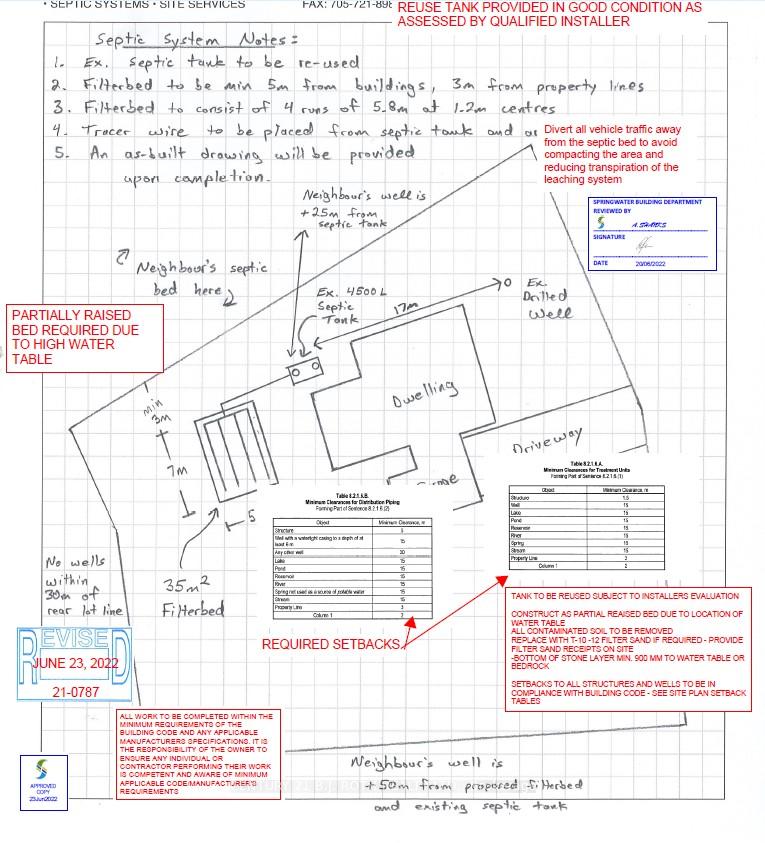 • SEPTIC SYSTEMS • SITE SERVICES
FAX: 705-721-898
REUSE TANK PROVIDED IN GOOD CONDITION AS
ASSESSED BY QUALIFIED INSTALLER
Septic System Notes:
1. Ex. Septic tank to be re-used
2. Filterbed to be min 5m from buildings, 3m from property lines
3. Filterbed to consist of 4 runs of 5.8m at 1.2m centres
4. Tracer wire to be placed from septic tank and
5. An as-built drawing will be provided
upon completion.
Divert all vehicle traffic away
from the septic bed to avoid
compacting the area and
reducing transpiration of the
leaching system
SPRINGWATER BUILDING DEPARTMENT
REVIEWED BY
A.SHANKS
SIGNATURE
DATE 20/06/2022
Neighbour's well is
+25m from
septic tank
Neighbour's septic
bed here
Ex. 4500 L
Septic
Tank
17m
Ex.
Drilled
Well
PARTIALLY RAISED
BED REQUIRED DUE
TO HIGH WATER
TABLE
Dwelling
min
3m
7m
5
Driveway
Table 8.2.1.6.A.
Minimum Clearances for Treatment Units
Forming Part of Sentence 8.2.1.6.(1)
Object Minimum Clearance, m
Structure 1.5
Well 15
Lake 15
Pond 15
Reservoir 15
River 15
Spring 15
Stream 15
Property Line 3
Column 1 2
Table 8.2.1.6.B.
Minimum Clearances for Distribution Piping
Forming Part of Sentence 8.2.1.6.(2)
Object Minimum Clearance, m
Structure 5
Well with a watertight casing to a depth of at
least 6 m 15
Any other well 30
Lake 15
Pond 15
Reservoir 15
River 15
Spring not used as a source of potable water 15
Stream 15
Property Line 3
Column 1 2
No wells
within
30m of
rear lot line
35m²
Filterbed
REQUIRED SETBACKS
TANK TO BE REUSED SUBJECT TO INSTALLERS EVALUATION
CONSTRUCT AS PARTIAL REAISED BED DUE TO LOCATION OF
WATER TABLE
ALL CONTAMINATED SOIL TO BE REMOVED
REPLACE WITH T-10 -12 FILTER SAND IF REQUIRED - PROVIDE
FILTER SAND RECEIPTS ON SITE
-BOTTOM OF STONE LAYER MIN. 900 MM TO WATER TABLE OR
BEDROCK
SETBACKS TO ALL STRUCTURES AND WELLS TO BE IN
COMPLIANCE WITH BUILDING CODE - SEE SITE PLAN SETBACK
TABLES
REVISED
JUNE 23, 2022
21-0787
ALL WORK TO BE COMPLETED WITHIN THE
MINIMUM REQUIREMENTS OF THE
BUILDING CODE AND ANY APPLICABLE
MANUFACTURERS SPECIFICATIONS. IT IS
THE RESPONSIBILITY OF THE OWNER TO
ENSURE ANY INDIVIDUAL OR
CONTRACTOR PERFORMING THEIR WORK
IS COMPETENT AND AWARE OF MINIMUM
APPLICABLE CODE/MANUFACTURER'S
REQUIREMENTS
APPROVED
COPY
23Jun2022
Neighbour's well is
+50m from proposed filterbed
and existing septic tank